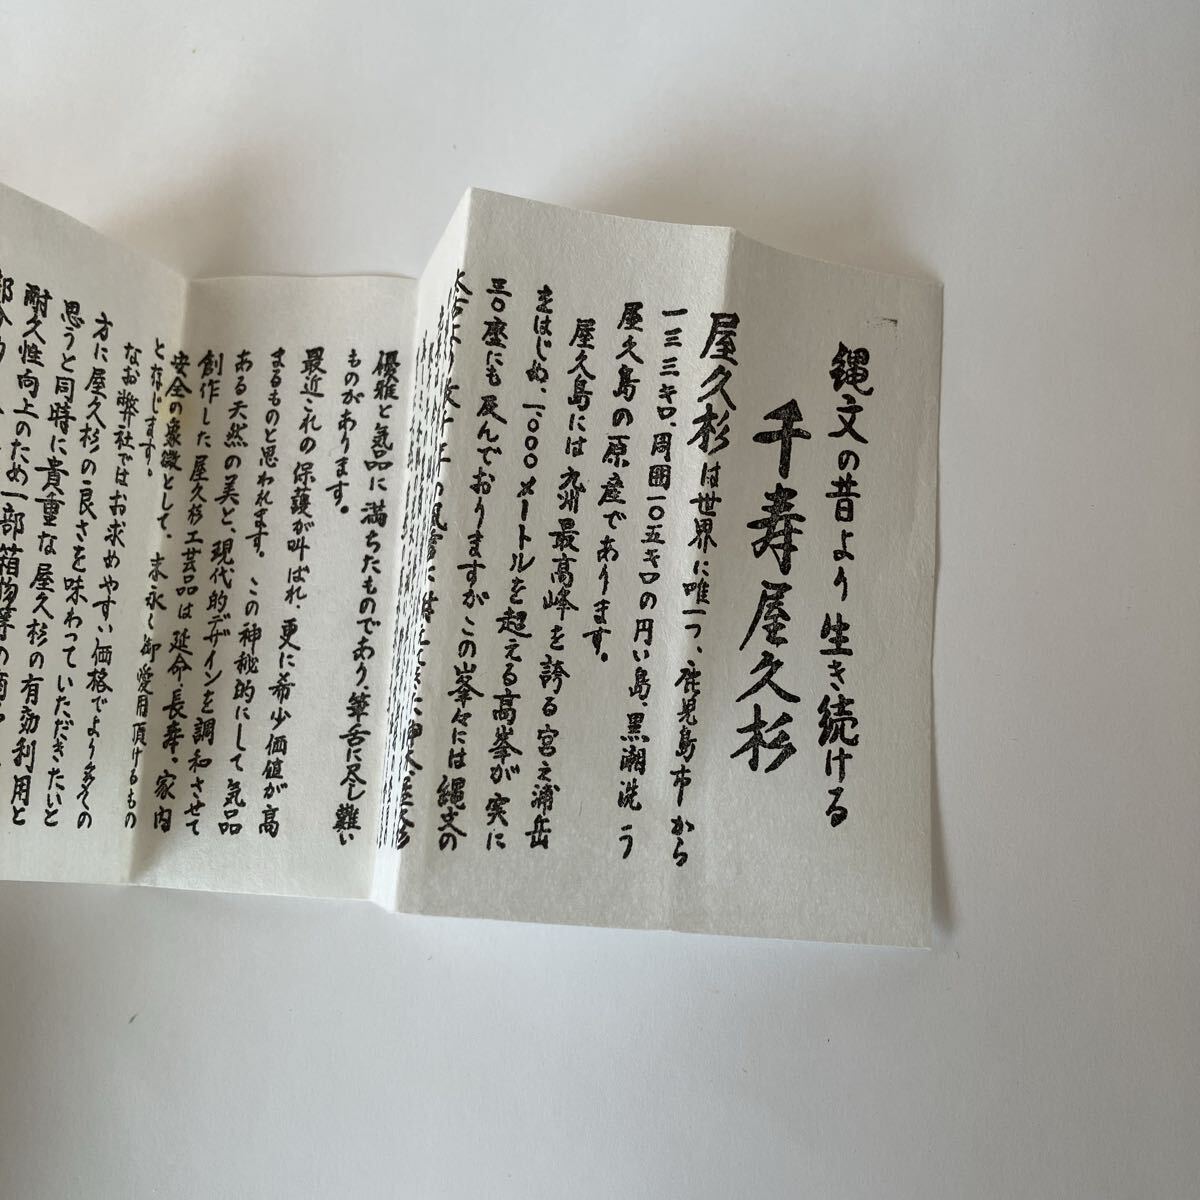 縄文の昔より生き続ける
千寿屋久杉
屋久杉は世界に唯一つ、鹿児島市から
一三三キロ、周囲一〇五キロの円い島、黒潮洗う
屋久島の原産であります。
屋久島には九州最高峰を誇る宮之浦岳
をはじめ、一、〇〇〇メートルを超える高峯が実に
三〇座にも及んでおりますがこの峯々には縄文の
優雅と気品に満ちたものであり、筆舌に尽し難い
ものがあります。
最近これの保護が叫ばれ、更に希少価値が高
まるものと思われます。この神秘的にして気品
ある天然の美と、現代的デザインを調和させて
創作した屋久杉工芸品は延命・長寿。家内
安全の象徴として、末永く御愛用頂けるもの
と存じます。
なお弊社ではお求めやすい価格でより多くの
方に屋久杉の良さを味わっていただきたいと
思うと同時に貴重な屋久杉の有効利用と
耐久性向上のため一部箱物等の